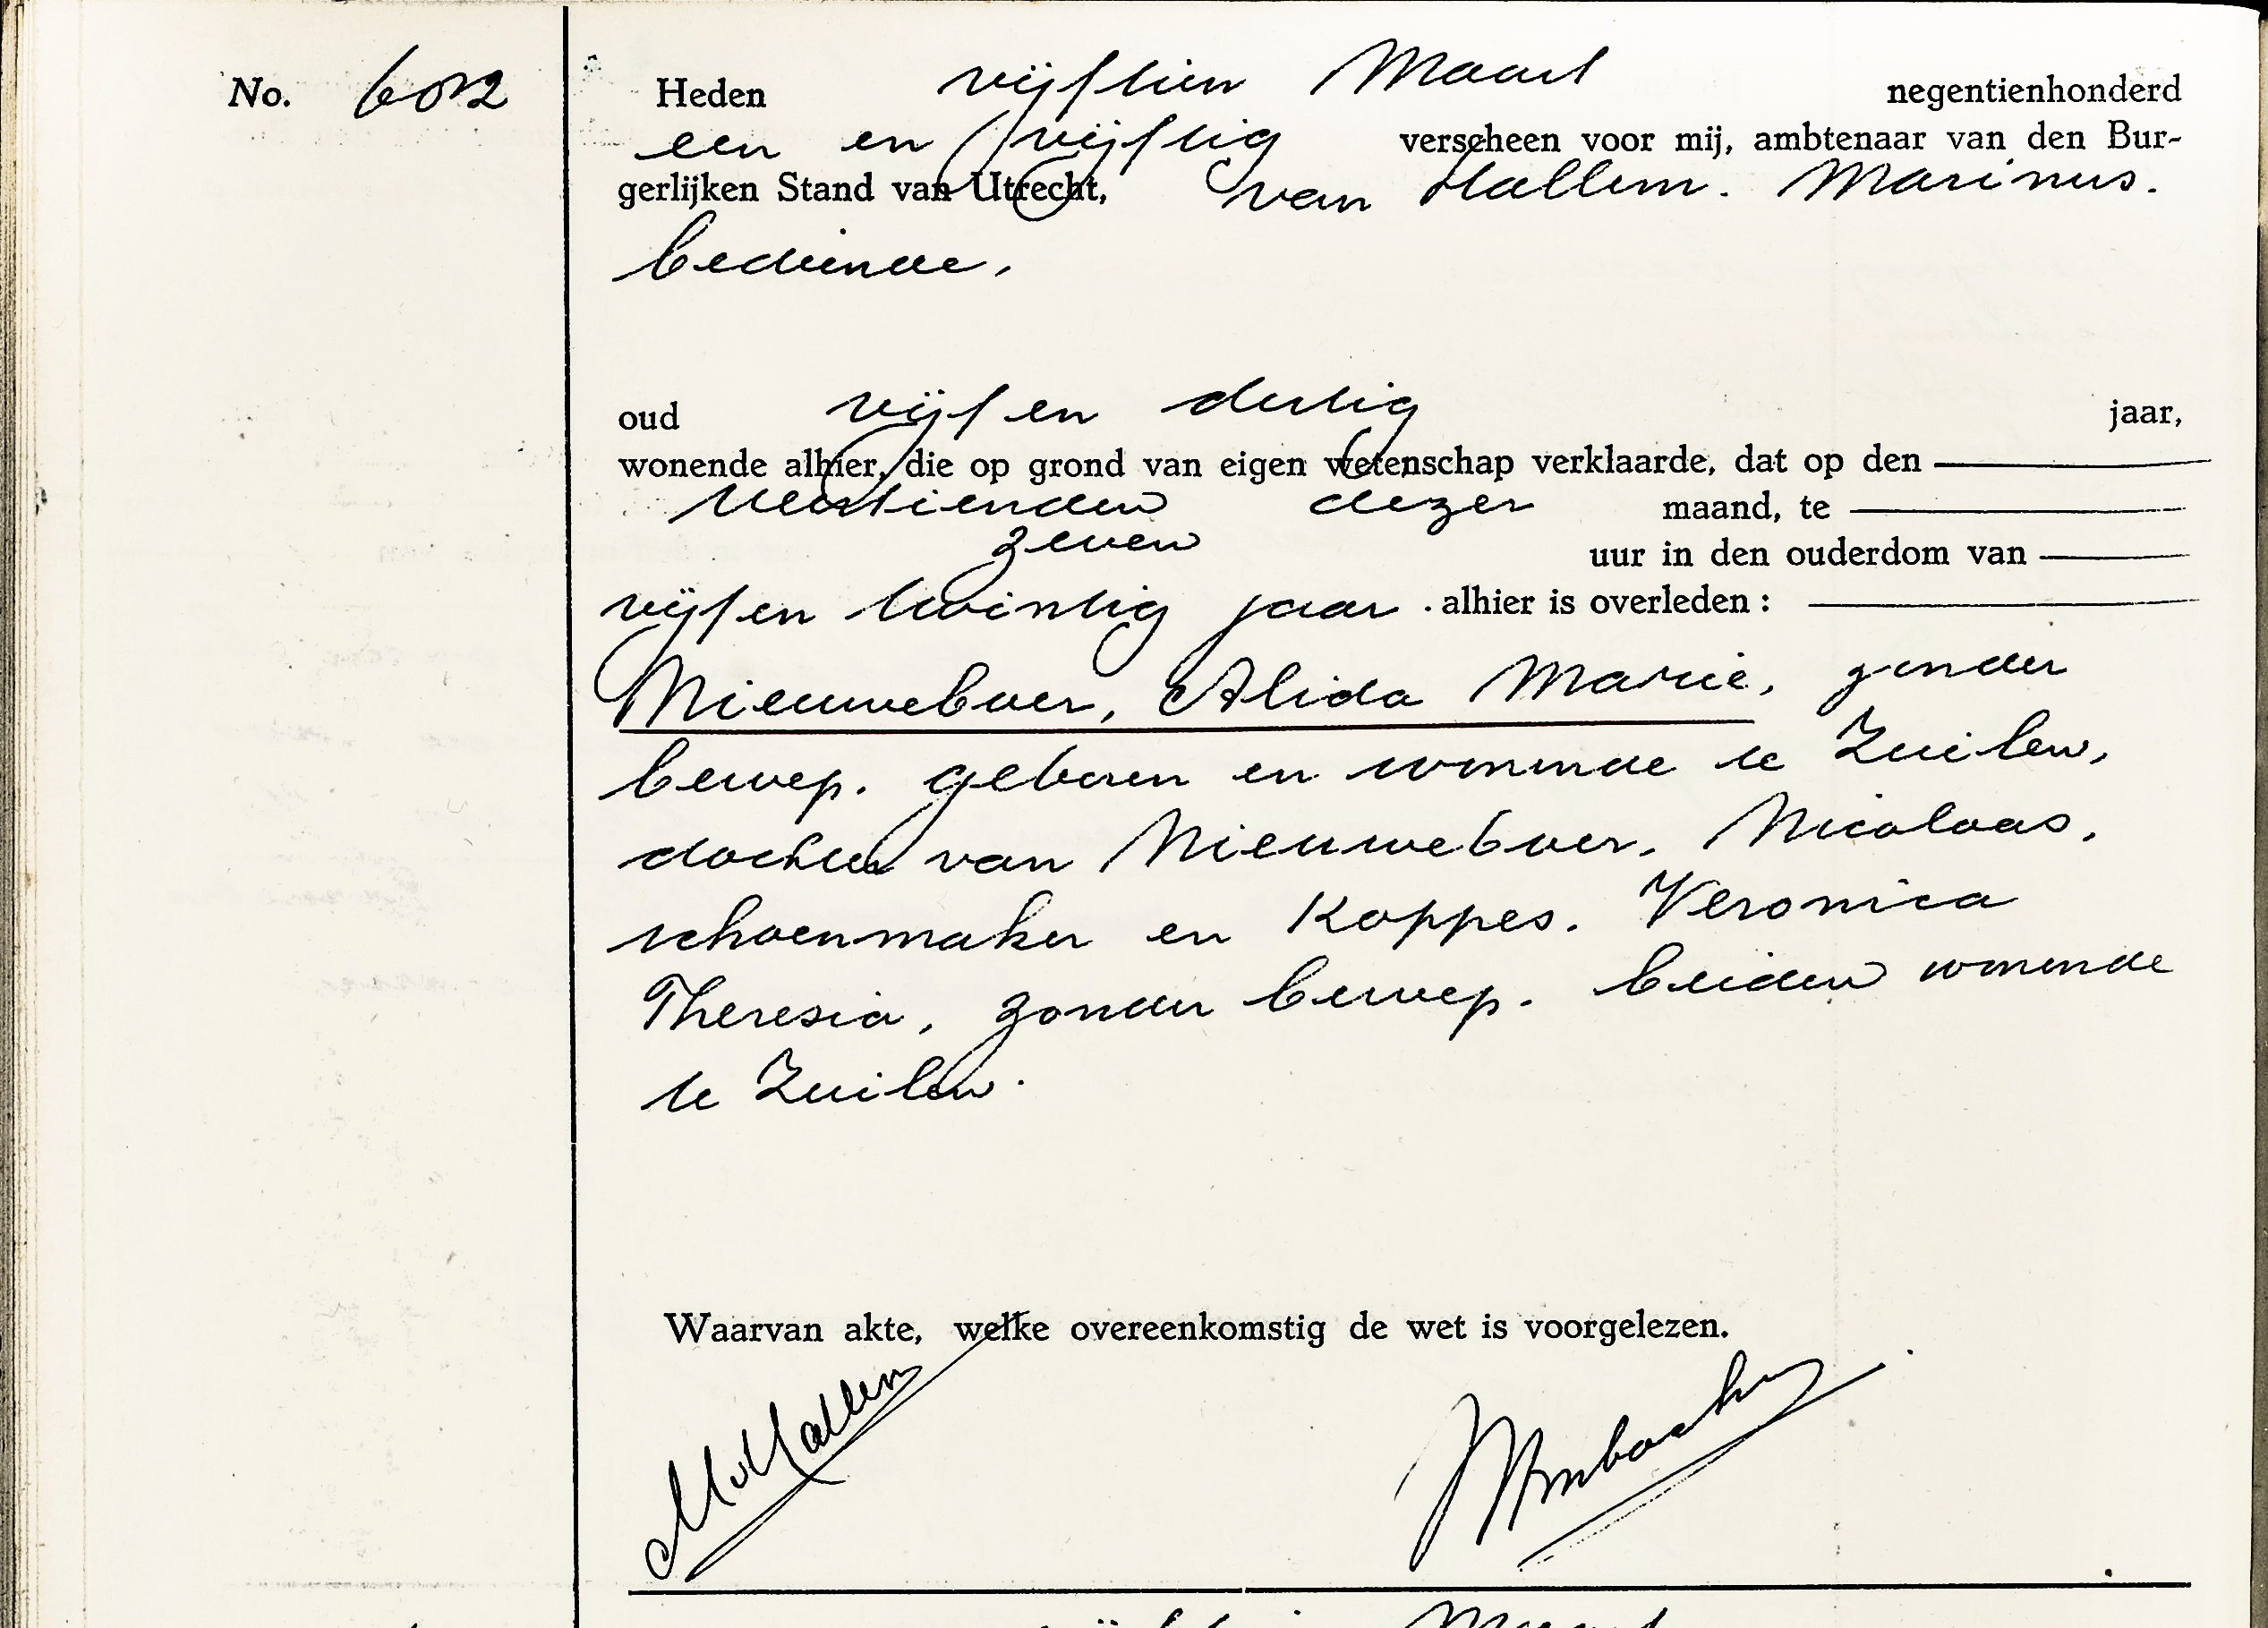 No. 602
Heden vijftien Maart negentienhonderd
een en vijftig verscheen voor mij, ambtenaar van den Bur-
gerlijken Stand van Utrecht, van Hallem. Marinus.
bediende,
oud vijf en dertig jaar,
wonende alhier, die op grond van eigen wetenschap verklaarde, dat op den
veertienden dezer maand, te
zeven uur in den ouderdom van
vijf en twintig jaar . alhier is overleden :
Nieuweboer, Alida Marie, zonder
beroep. geboren en wonende te Zuilen,
dochter van Nieuweboer, Nicolaas,
schoenmaker en Koppes. Veronica
Theresia, zonder beroep. beiden wonende
te Zuilen.
Waarvan akte, welke overeenkomstig de wet is voorgelezen.
MvHallem